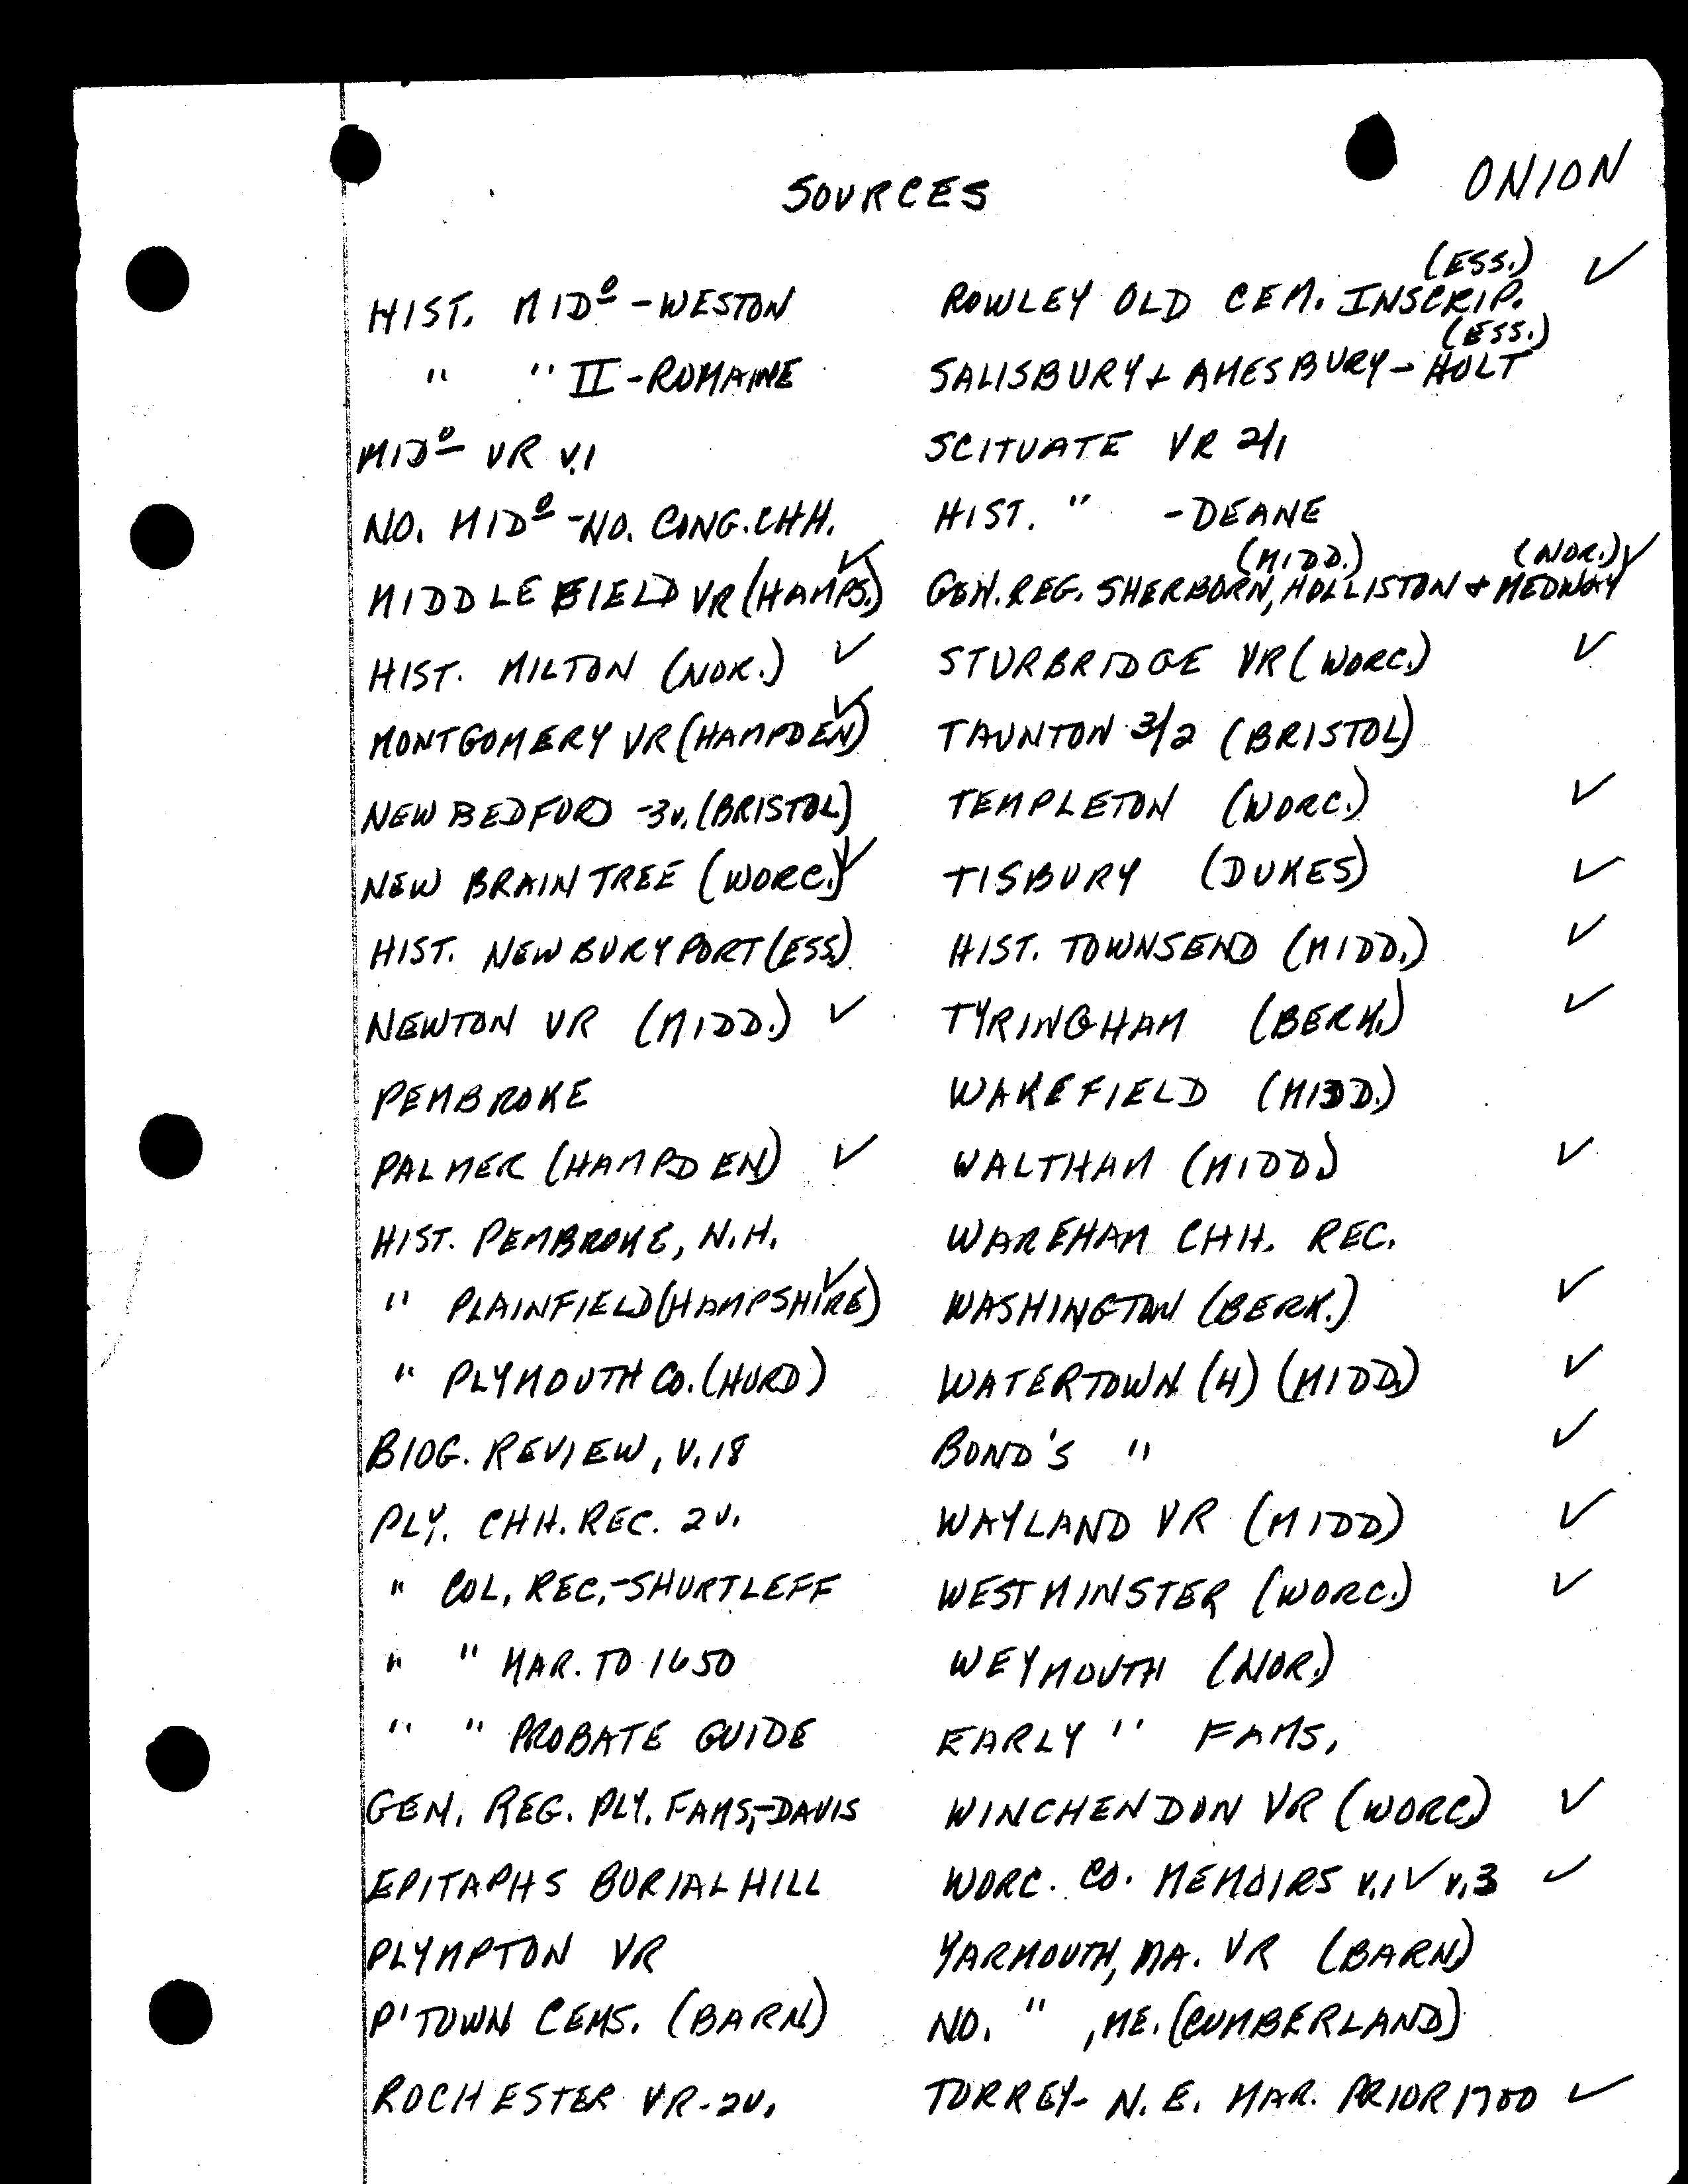 SOURCES
ONION
HIST. MIDº - WESTON
" " II - ROMAINE
MIDº VR V.1
NO. MIDº - NO. CONG. CHH.
MIDDLEFIELD VR (HAMPS.) ✓
HIST. MILTON (NOR.) ✓
MONTGOMERY VR (HAMPDEN) ✓
NEW BEDFORD - 3v. (BRISTOL)
NEW BRAINTREE (WORC.) ✓
HIST. NEWBURYPORT (ESS.)
NEWTON VR (MIDD.) ✓
PEMBROKE
PALMER (HAMPDEN) ✓
HIST. PEMBROKE, N.H.
" PLAINFIELD (HAMPSHIRE) ✓
" PLYMOUTH CO. (HURD)
BIOG. REVIEW, V.18
PLY. CHH. REC. 2V.
" COL. REC. - SHURTLEFF
" " MAR. TO 1650
" " PROBATE GUIDE
GEN. REG. PLY. FAMS. - DAVIS
EPITAPHS BURIAL HILL
PLYMPTON VR
P'TOWN CEMS. (BARN)
ROCHESTER VR - 2V.
(ESS.) ✓
ROWLEY OLD CEM. INSCRIP.
(ESS.)
SALISBURY + AMESBURY - HOLT
SCITUATE VR 2/1
HIST. " - DEANE
(MIDD.) (NOR.) ✓
GEN. REG. SHERBORN, HOLLISTON + MEDWAY
STURBRIDGE VR (WORC.) ✓
TAUNTON 3/2 (BRISTOL)
TEMPLETON (WORC.) ✓
TISBURY (DUKES) ✓
HIST. TOWNSEND (MIDD.) ✓
TYRINGHAM (BERK.) ✓
WAKEFIELD (MIDD.)
WALTHAM (MIDD.) ✓
WAREHAM CHH. REC.
WASHINGTON (BERK.) ✓
WATERTOWN (4) (MIDD.) ✓
BOND'S " ✓
WAYLAND VR (MIDD) ✓
WESTMINSTER (WORC.) ✓
WEYMOUTH (NOR.)
EARLY " FAMS.
WINCHENDON VR (WORC.) ✓
WORC. CO. MEMOIRS V.1 ✓ V.3 ✓
YARMOUTH, MA. VR (BARN)
NO. " , ME. (CUMBERLAND)
TORREY - N.E. MAR. PRIOR 1700 ✓